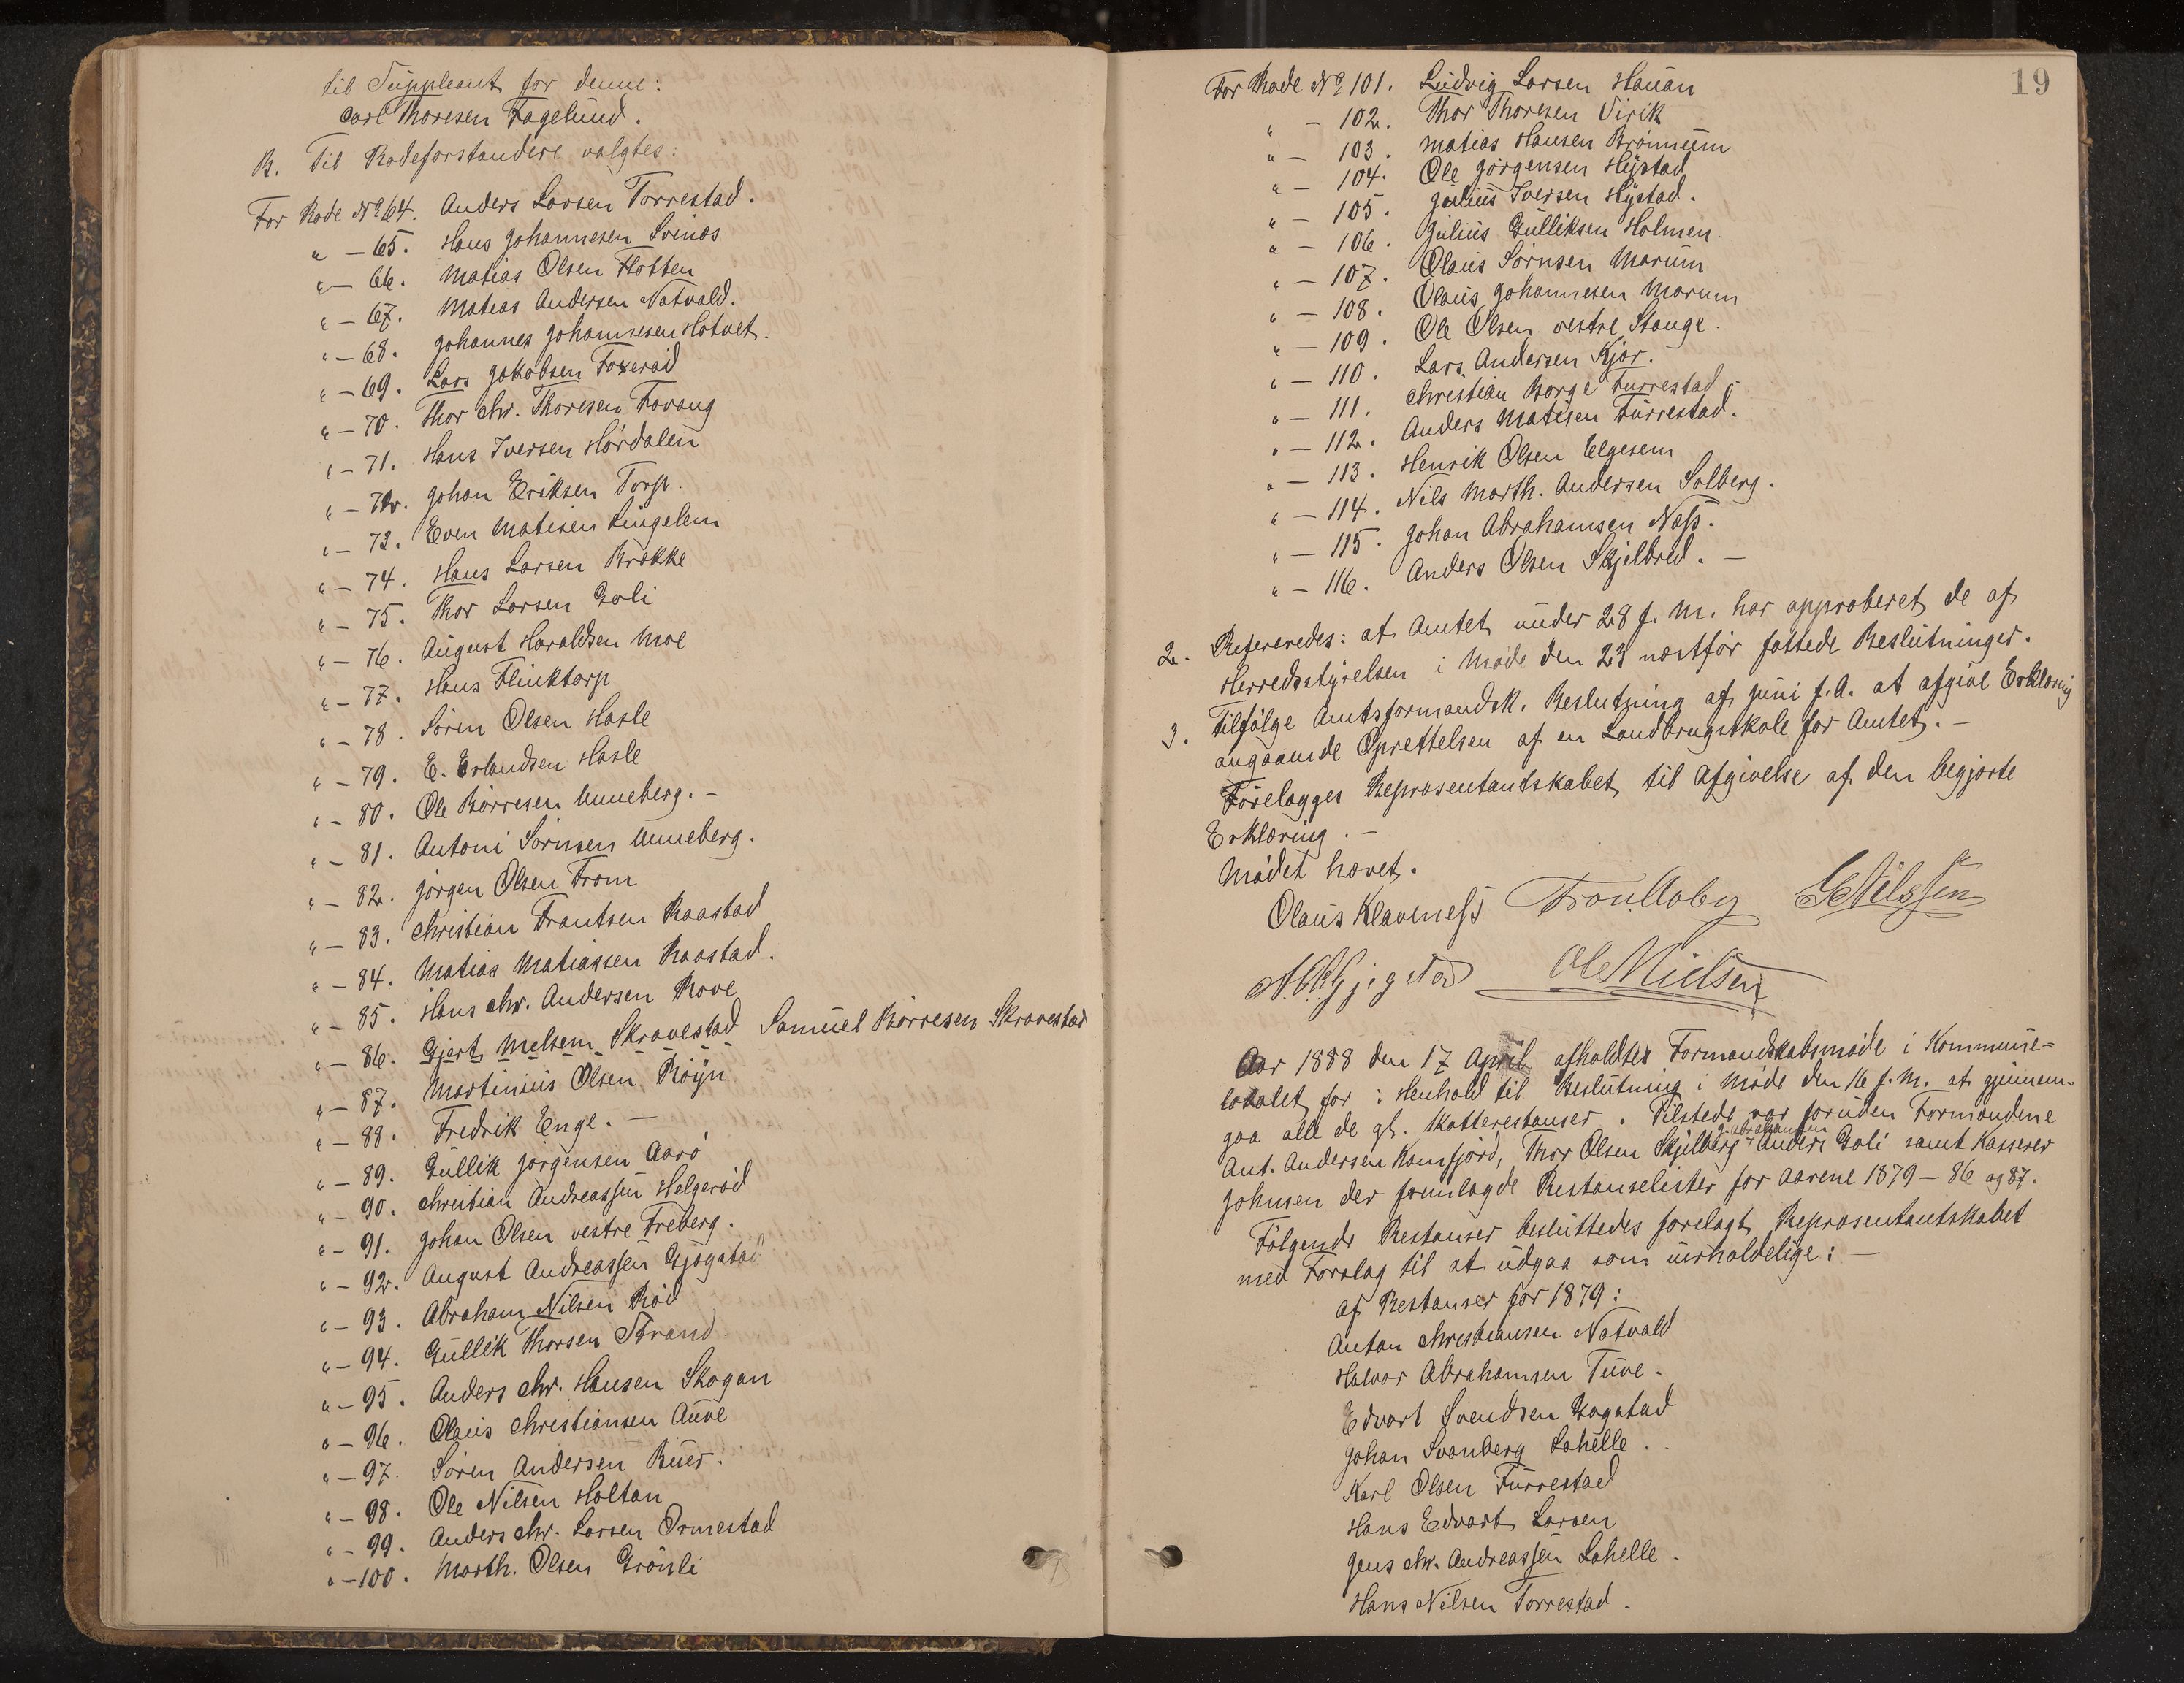 til Suppleant for denne:
Carl Thoresen Fagelund.
B. Til Rodeforstandere valgtes:
For Rode No 64. Anders Larsen Torrestad.
" — 65. Hans Johannesen Svinøs
" — 66. Matias Olsen Flotten
" — 67. Matias Andersen Natvald.
" — 68. Johannes Johannesen Hotvet.
" — 69. Lars Jakobsen Foxerød
" — 70. Thor Chr. Thoresen Fævang
" — 71. Hans Iversen Hørdalen
" — 72. Johan Eriksen Torp.
" — 73. Even Matisen Lingelem
" — 74. Hans Larsen Brekke
" — 75. Thor Larsen Goli
" — 76. August Haraldsen Moe
" — 77. Hans Flinktorp
" — 78. Søren Olsen Hasle
" — 79. E. Erlandsen Hasle
" — 80. Ole Børresen Unneberg. —
" — 81. Antoni Sørnsen Unneberg.
" — 82. Jørgen Olsen From
" — 83. Christian Frantsen Raastad
" — 84. Matias Matiassen Raastad.
" — 85. Hans Chr. Andersen Rove
" — 86. Gjert Melsem Skravestad Samuel Børresen Skravestad
" — 87. Martinius Olsen Røyn
" — 88. Fredrik Enge. —
" — 89. Gullik Jørgensen Aarø
" — 90. Christian Andreassen Helgerød
" — 91. Johan Olsen vestre Freberg.
" — 92. August Andreassen Gjøgstad
" — 93. Abraham Nilsen Rød
" — 94. Gullik Thorsen Strand
" — 95. Anders Chr. Hansen Skogan
" — 96. Olaus Christiansen Auve
" — 97. Søren Andersen Buer.
" — 98. Ole Nilsen Holtan
" — 99. Anders Chr. Larsen Ormestad
" — 100. Marth. Olsen Grønli
19
For Rode No 101. Ludvig Larsen Hauan
" — 102. Thor Thoresen Virik
" — 103. Matias Hansen Brønnum
" — 104. Ole Jørgensen Hystad
" — 105. Julius Iversen Hystad.
" — 106. Julius Gulliksen Holmen
" — 107. Olaus Sørnsen Marum
" — 108. Olaus Johannesen Marum
" — 109. Ole Olsen vestre Stange.
" — 110. Lars Andersen Kjær.
" — 111. Christian Borge Furrestad.
" — 112. Anders Matisen Furrestad.
" — 113. Henrik Olsen Elgesem
" — 114. Nils Marth. Andersen Solberg.
" — 115. Johan Abrahamsen Næss.
" — 116. Anders Olsen Skjelbred. —
2. Refereredes: at Amtet under 28 f. M. har approberet de af
Herredsstyrelsen i Møde den 23 næstfør fattede Beslutninger.
3. Tilfølge Amtsformandsk. Beslutning af Juni f. A. at afgive Erklæring
angaaende Oprettelsen af en Landbrugsskole for Amtet. —
Forelægges Repræsentantskabet til Afgivelse af den begjærte
Erklæring. —
Mødet hævet.
Olaus Klaveness Fron Aaby G Nilssen
Ole Nielsen
Aar 1888 den 17 April afholdtes Formandskabsmøde i Kommune-
lokalet for i Henhold til Beslutning i Møde den 16 f. M. at gjennem-
gaa alle de gl. Skatterestanser. Tilstede var foruden Formændene
Ant. Andersen Kamfjord, Thor Olsen Skjelberg Abrahamsen Anders Goli samt Kasserer
Johnsen der fremlagde Restanselister for Aarene 1879—86 og 87.
Følgende Restanser besluttedes forelagt Repræsentantskabet
med Forslag til at udgaa som uerholdelige: —
af Restanser for 1879:
Anton Christiansen Natvald
Halvor Abrahamsen Tuve.
Edvart Svendsen Bogstad
Johan Svanberg Lahelle.
Karl Olsen Furrestad
Hans Edvart Larsen
Jens Chr. Andreassen Lahelle.
Hans Nilsen Torrestad.